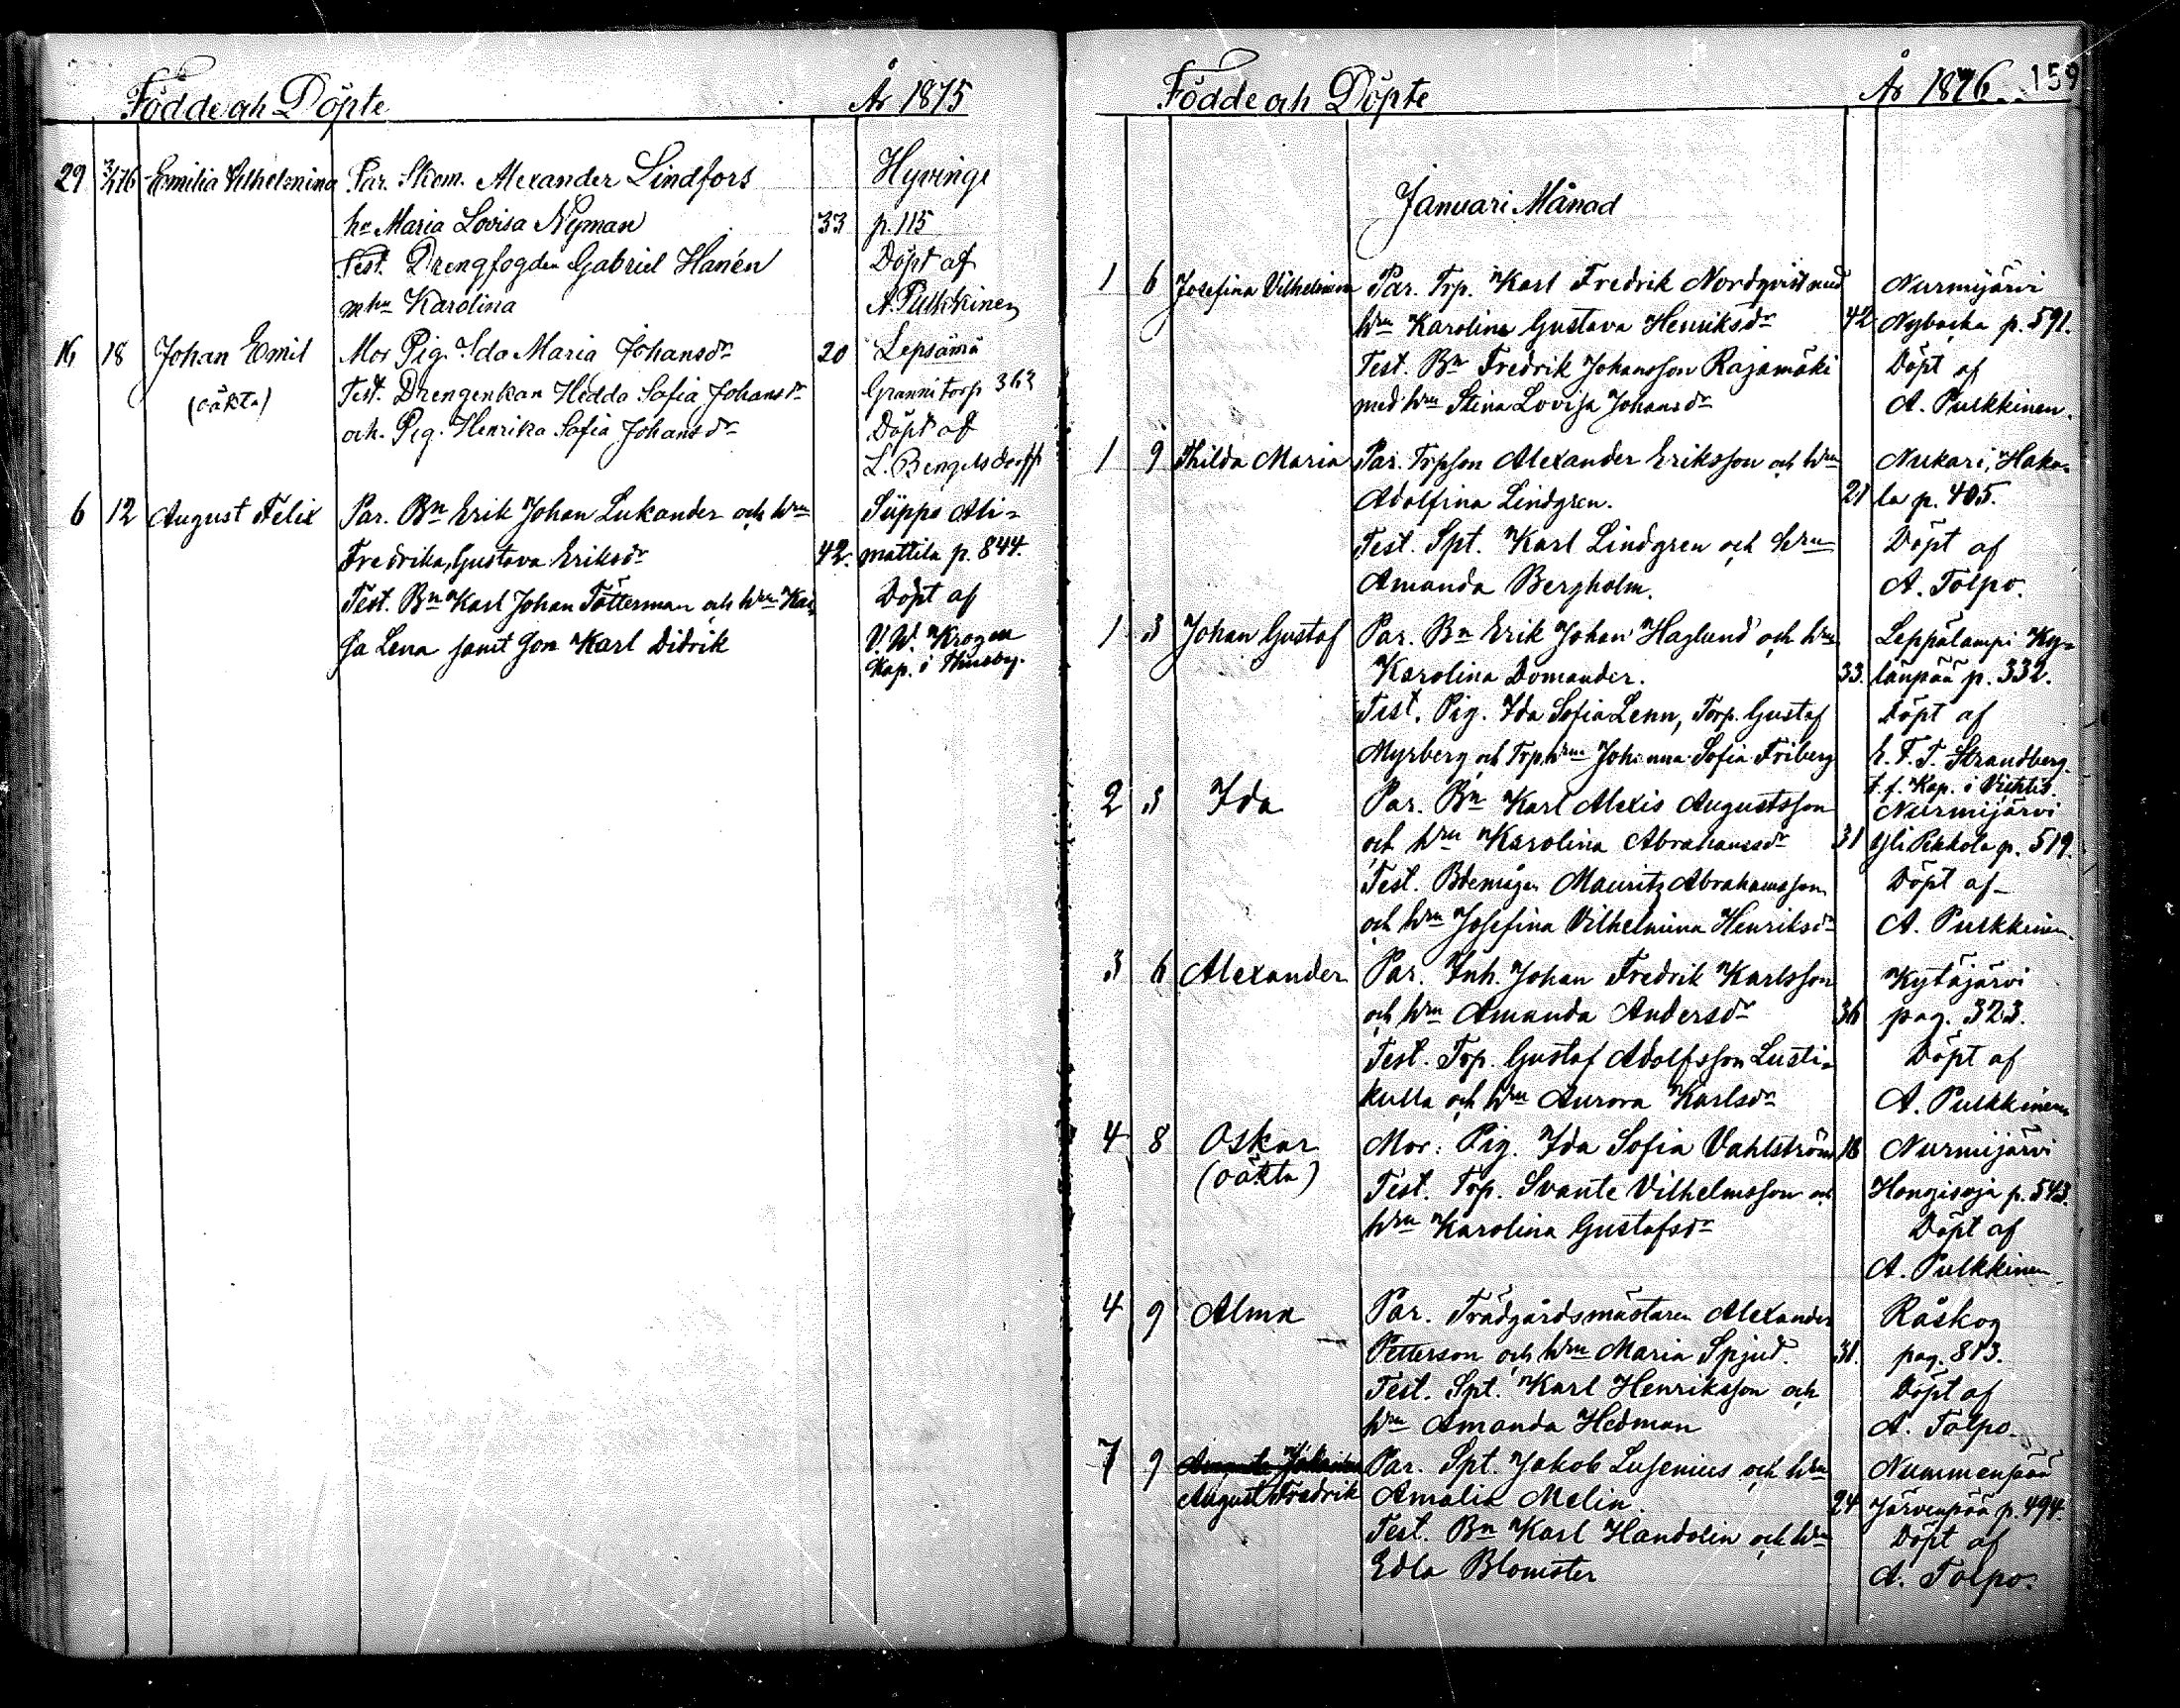 Födde och Döpte År 1875
29 3/1 76 Emilia Vilhelmina Par. Skom. Alexander Lindfors Hyvinge
hu Maria Lovisa Nyman 33 p. 115
Test. Drengfogden Gabriel Hanén Döpt af
m hu Karolina A. Pulkkinen
16 18 Johan Emil Mor Pig. Ida Maria Johansdr 20 Lepsämä
(oäkta) Test. Drengenkan Hedda Sofia Johansdr Grannitorp 363
och Pig. Henrika Sofia Johansdr Döpt af
L. Bengelsdorff
6 12 August Felix Par. Bn Erik Johan Lukander och hru Siippo Ali-
Fredrika Gustava Eriksdr 42. mattila p. 844.
Test. Bn Karl Johan Tötterman och hru Kai Döpt af
sa Lena samt son Karl Didrik V. W. Krogen
Kap. i Thusby.
Födde och Döpte År 1876 159
Januari Månad
1 6 Josefina Vilhelmina Par. Trp. Karl Fredrik Nordqvist med Nurmijärvi
hru Karolina Gustava Henriksdr 42 Nybacka p. 591.
Test. Bn Fredrik Johansson Rajamäki Döpt af
med hru Stina Lovisa Johansdr A. Pulkkinen.
1 9 Thilda Maria Par. Trpson Alexander Eriksson och hru Nukari, Haka-
Adolfina Lindgren. 21 la p. 405.
Test. Spt. Karl Lindgren och hru Döpt af
Amanda Bergholm. A. Tolpo.
1 3 Johan Gustaf Par. Bn Erik Johan Haglund och hru Leppälampi Ky-
Karolina Domander. 33. länpää p. 332.
Test. Pig. Ida Sofia Lenn, Torp. Gustaf Döpt af
Myrberg och Trp.hru Johanna Sofia Friberg E. F. T. Strandberg.
t. f. Kap. i Vichtis.
2 3 Ida Par. Bn Karl Alexis Augustsson Nurmijärvi
och hru Karolina Abrahamsdr 31 Yli Pekkola p. 519.
Test. Bdemågen Mauritz Abrahamsson Döpt af
och hru Josefina Vilhelmina Henriksdr A. Pulkkinen.
3 6 Alexander Par. Inh. Johan Fredrik Karlsson Kytäjärvi
och hru Amanda Andersdr 36 pag. 323.
Test. Trp. Gustaf Adolfsson Lusti- Döpt af
kulla och hru Aurora Karlsdr A. Pulkkinen
4 8 Oskar Mor: Pig. Ida Sofia Vahlström 18 Nurmijärvi
(oäkta) Test. Trp. Svante Vilhelmsson och Hongisoja p. 543.
hru Karolina Gustafsdr Döpt af
A. Pulkkinen
4 9 Alma Par. Trädgårdsmästaren Alexander Råskog
Petterson och hru Maria Spjud. 31. pag. 813.
Test. Spt. Karl Henriksson och Döpt af
hru Amanda Hedman A. Tolpo.
7 9 Par. Spt. Jakob Lusenius och hru Nummenpää
August Fredrik Amalia Melin. 24 Järvenpää p. 494.
Test. Bn Karl Handolin och hru Döpt af
Edla Blomster A. Tolpo.